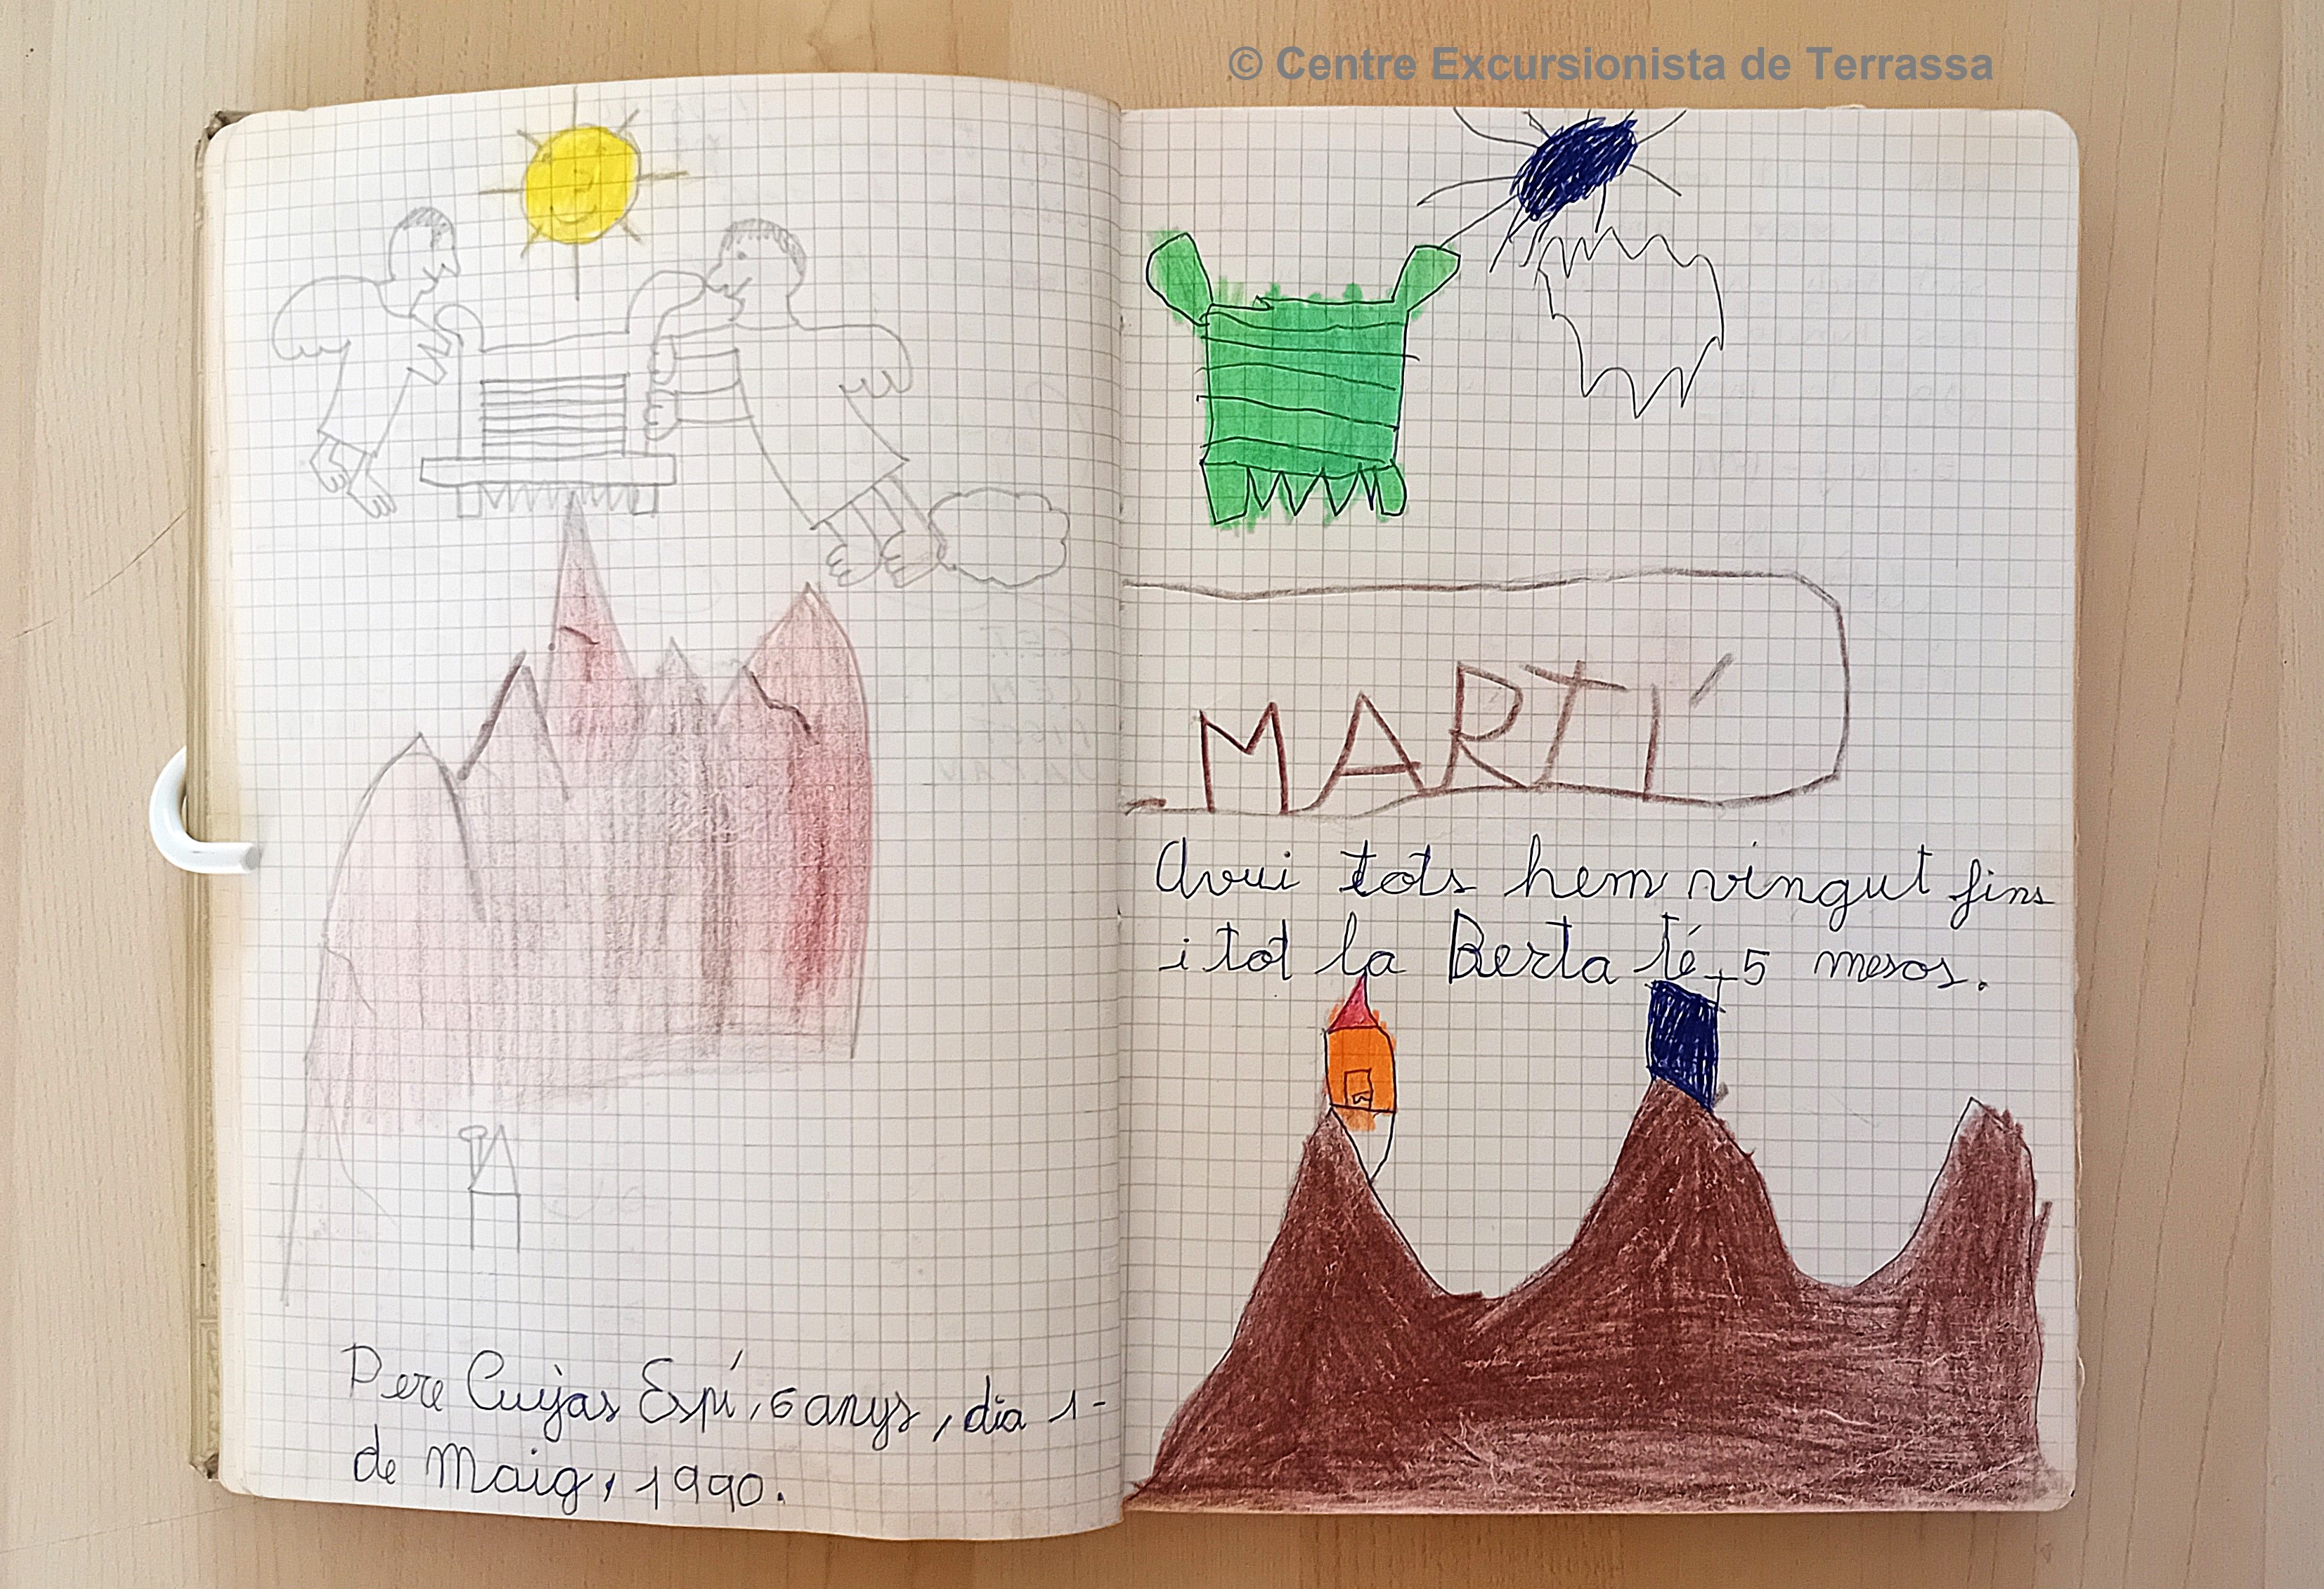 © Centre Excursionista de Terrassa
Pere Cuyàs Espí, 6 anys, dia 1-
de Maig, 1990.
MARTÍ
Avui tots hem vingut fins
i tot la Berta té 5 mesos.